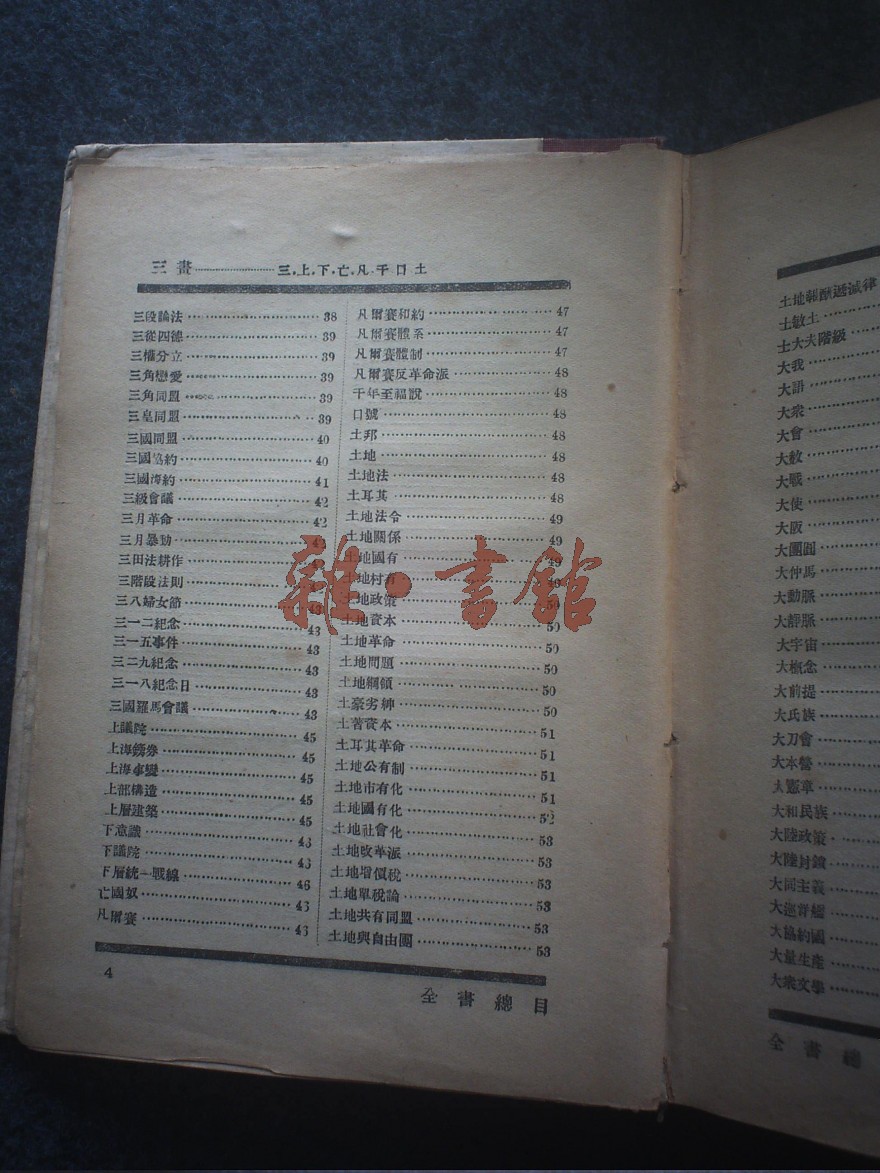 三畫……………三.上.下.亡.凡.千.口.土
三段論法……………38
三從四德……………39
三權分立……………39
三角戀愛……………39
三角同盟……………39
三皇同盟……………39
三國同盟……………40
三國協約……………40
三國海約……………41
三級會議……………42
三月革命……………42
三月暴動……………
三田法耕作……………
三階段法則……………
三八婦女節……………43
三一二紀念……………43
三一五事件……………43
三二九紀念……………43
三一八紀念日……………43
三國羅馬會議……………43
上議院……………45
上海鎊券……………45
上海事變……………45
上部構造……………45
上層建築……………45
下意識……………46
下議院……………46
下層統一戰線……………46
亡國奴……………46
凡爾賽……………46
凡爾賽和約……………47
凡爾賽體系……………47
凡爾賽體制……………47
凡爾賽反革命派……………48
千年至福說……………48
口號……………48
土邦……………48
土地……………48
土地法……………48
土耳其……………48
土地法令……………49
土地關係……………49
土地國有……………49
土地村有……………49
土地政策……………50
土地資本……………50
土地革命……………50
土地問題……………50
土地綱領……………50
土豪劣紳……………50
土著資本……………51
土耳其革命……………51
土地公有制……………51
土地市有化……………51
土地國有化……………52
土地社會化……………53
土地改革派……………53
土地增價稅……………53
土地單稅論……………53
土地共有同盟……………53
土地與自由團……………53
4
全書總目
雜·書館
土地報酬遞減律
士敏土
士大夫階級
大我
大語
大衆
大會
大赦
大戰
大使
大阪
大團圓
大仲馬
大動脈
大靜脈
大宇宙
大概念
大前提
大氏族
大刀會
大本營
大憲章
大和民族
大陸政策
大陸封鎖
大同主義
大協約國
大量生產
大衆文學
全書總